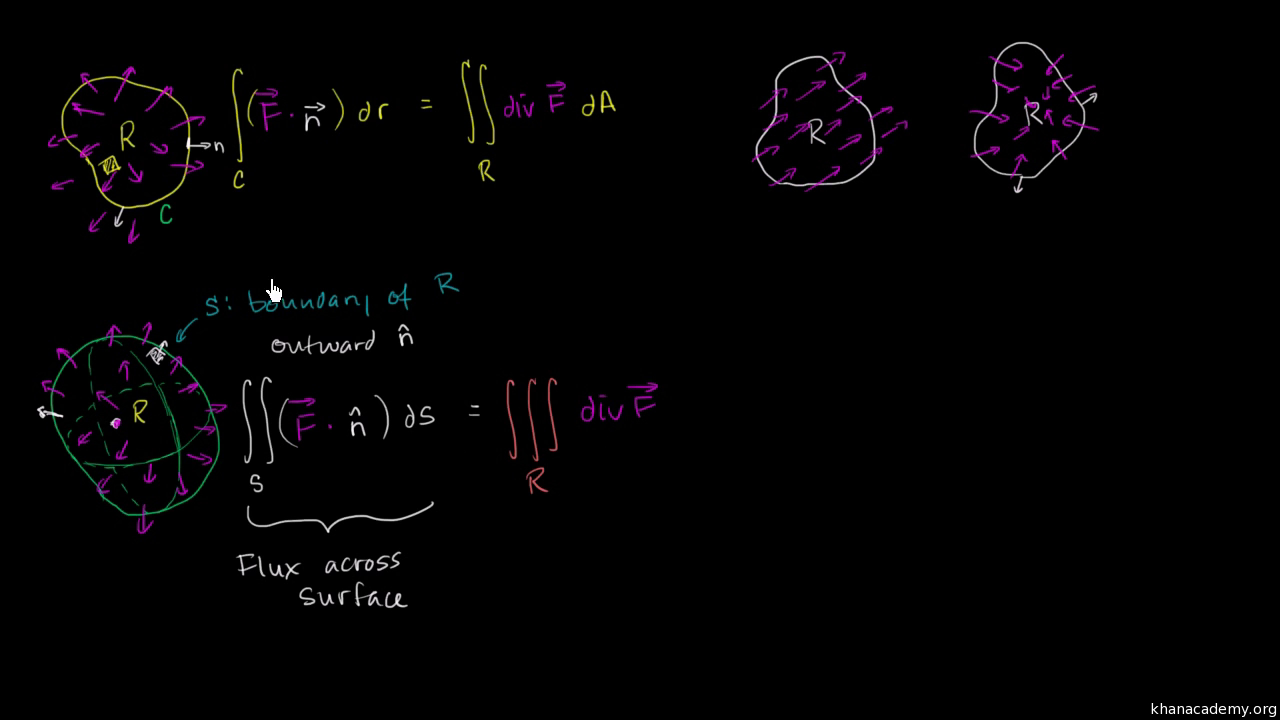 R
n
C
∫_C (F⃗ · n⃗) dr = ∬_R div F⃗ dA
R
R
S: boundary of R
outward n̂
R
∬_S (F⃗ · n̂) ds = ∭_R div F⃗
Flux across
surface
khanacademy.org